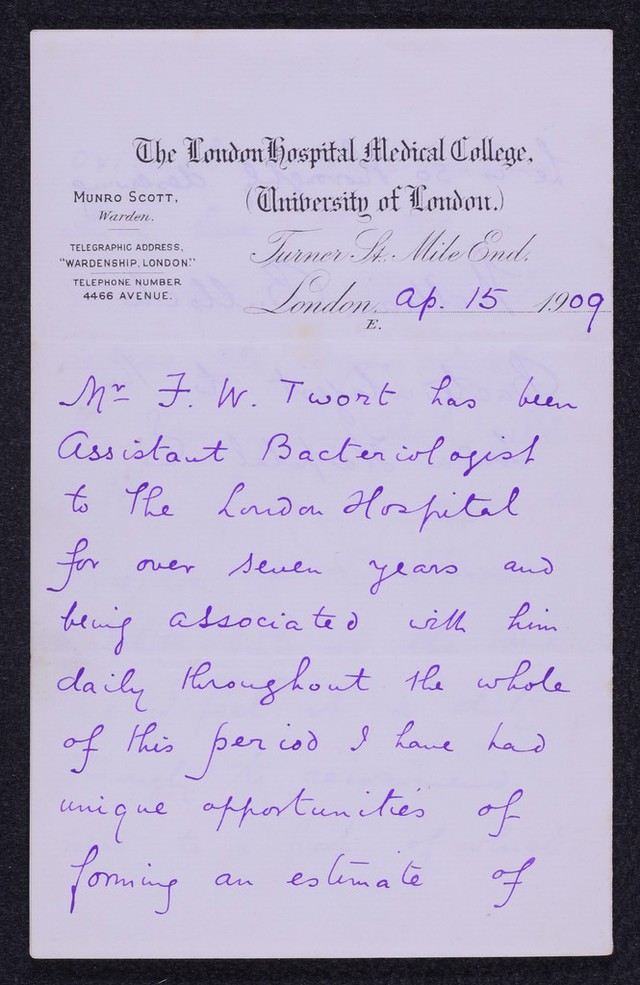 The London Hospital Medical College,
(University of London.)
MUNRO SCOTT,
Warden.
TELEGRAPHIC ADDRESS,
"WARDENSHIP, LONDON."
TELEPHONE NUMBER
4466 AVENUE.
Turner St. Mile End.
London, Ap. 15 1909
E.
Mr F. W. Twort has been
Assistant Bacteriologist
to The London Hospital
for over seven years and
being associated with him
daily throughout the whole
of this period I have had
unique opportunities of
forming an estimate of